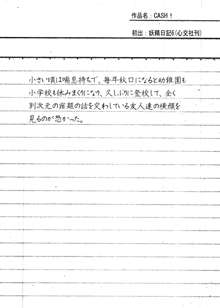 作品名：CASH！
初出：妖精日記6(心交社刊)
小さい頃は喘息持ちで、毎年秋口になると幼稚園も
小学校も休みまくりになり、久しぶりに登校して、全く
別次元の宿題の話を交わしている友人達の横顔を
見るのが悲かった。